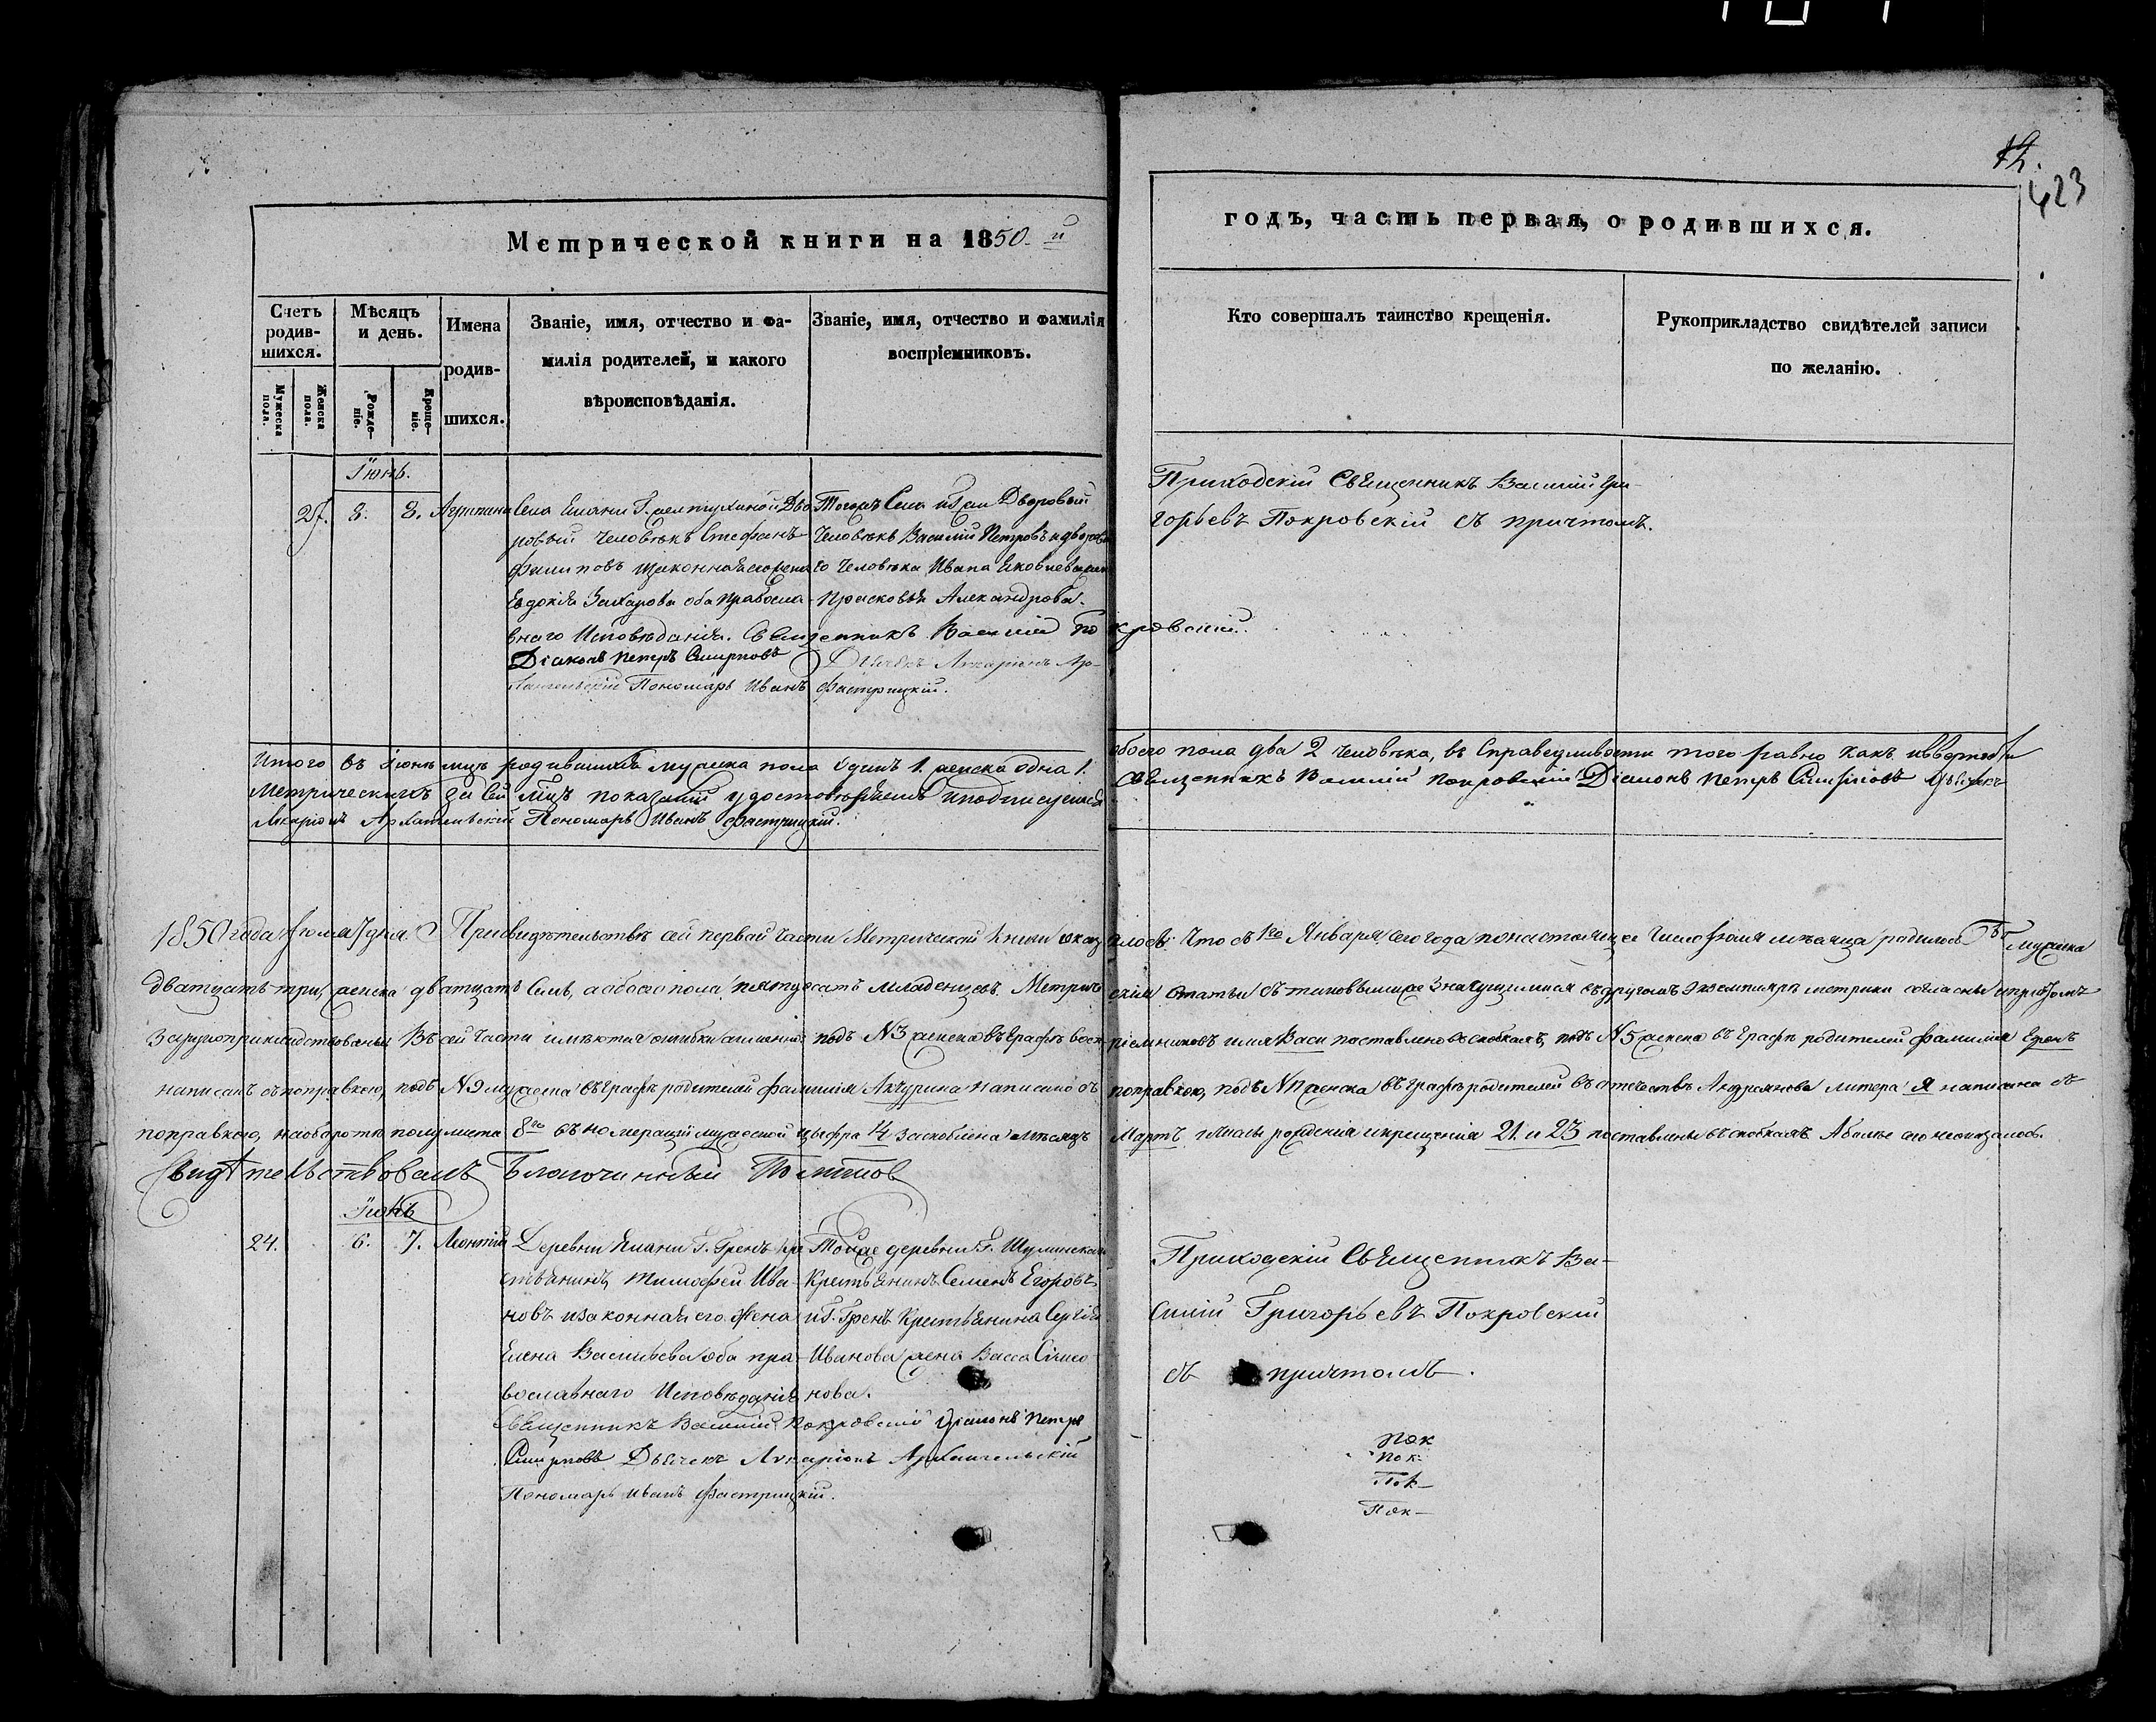 12.
423
Метрической книги на 1850-й
годъ, часть первая, о родившихся.
Счетъ родив-шихся.
Мужеска пола.
Женска пола.
Мѣсяцъ и день.
Рожде-ніе.
Креще-ніе.
Имена родив-шихся.
Званіе, имя, отчество и фа-
милія родителей, и какого
вѣроисповѣданія.
Званіе, имя, отчество и фамилія
воспріемниковъ.
Кто совершалъ таинство крещенія.
Рукоприкладство свидѣтелей записи
по желанію.
Іюнь.
27. 8. 8. Агрипина
Села Еманчи Г. Дво
ровый человѣкъ Стефанъ
Филиповъ изаконная его жена
Евдокія Захарова оба правосла-
внаго Исповѣданія. Священникъ Василій Покровскій.
Діаконъ Петръ Смирновъ Дьячекъ Макаріонъ Ар-
хангельскій Пономарь Иванъ Фастрицкій.
Тогожъ Села Дворовый
Человѣкъ Василій Петровъ и дворова
го Человѣка Ивана Яковлева жена
Прасковья Александрова.
Приходскій Священникъ Василій Гри-
горьевъ Покровскій съ причтомъ.
Итого въ Іюнѣ мцѣ родившихся мужеска пола одинъ 1. женска одна 1. обоего пола два 2 человѣка, въ Справедливости того равно какъ
Метрическихъ за сей мцъ показаній удостовѣряемъ иподписуемся Священникъ Василій Покровскій Діаконъ Петръ Смирновъ Дьячекъ
Архангельскій Пономарь Иванъ Фастрицкій.
1850 года Іюля 7 дня. При свидѣтельствѣ сей первой части Метрической книги оказалось: Что съ 1го Января сего года понастоящее число Іюля мѣсяца родилось мужеска
дватцать три, женска дватцать семь, а обоего пола пятьдесятъ младенцевъ. Метрическія Статьи съ таковымиже значущимися въдругомъ экземплярѣ метрики согласны ипричтомъ
Зарукоприкладствованы. Въ сей части имѣются ошибки аименно: подъ №3 женска въ графѣ воспріемниковъ имя Васи поставлено въ скобкахъ, подъ №5 женска въ графѣ родителей фамилія
написанъ съ поправкою, подъ №9 мужеска въ графѣ родителей фамилія Акчурина написано съ поправкою, подъ № женска въ графѣ родителей въ отечествѣ Андреянова литера я написана съ
поправкою, наоборотѣ полулиста 8го въ номераціи мужеской цыфра 14 заскоблена мѣсяцъ Мартъ числы рожденія икрещенія 21. и 23 поставлены въ скобкахъ. Аболѣе сего неоказалось.
Свидѣтельствовалъ Благочинный
Іюнь
24. 6. 7. Леонтій
Деревни Еманчи Г. Гренъ Кре
стьянинъ Тимофей Ива-
новъ изаконная его жена
Елена Васильева оба пра-
вославнаго Исповѣданія
Священникъ Василій Покровскій Діаконъ Петръ
Смирновъ Дьячекъ Макаріонъ Архангельскій
Пономарь Иванъ Фастрицкій.
Тойже деревни Г. Шуминскаго
Крестьянинъ Семенъ Егоровъ
и Г. Гренъ Крестьянина Сергѣя
Иванова жена Васса Симео-
нова.
Приходскій Священникъ Ва-
силій Григорьевъ Покровскій
съ причтомъ.
Пок
Пок.
Пок-
Пок-